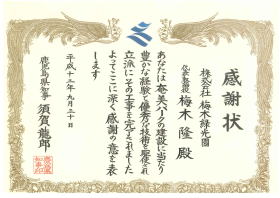 感謝状
株式会社 梅木緑光園
代表取締役 梅木 隆 殿
あなたは奄美パークの建設に当たり
豊かな経験と優秀な技術を駆使され
立派にその工事を完了されました
よってここに深く感謝の意を表
します
平成十三年九月三十日
鹿児島県知事 須賀龍郎